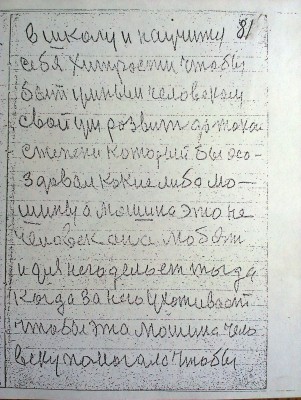 81
в школу и научить
себя хитрости чтобы
быть умным человеком
свой ум розвить до такой
степени который бы
создавал какие либо мо-
шину а мошина это не
человек она может
и для него делает тогда
когда за ней ухаживает
чтобы эта мошина чело
веку помогала чтобы